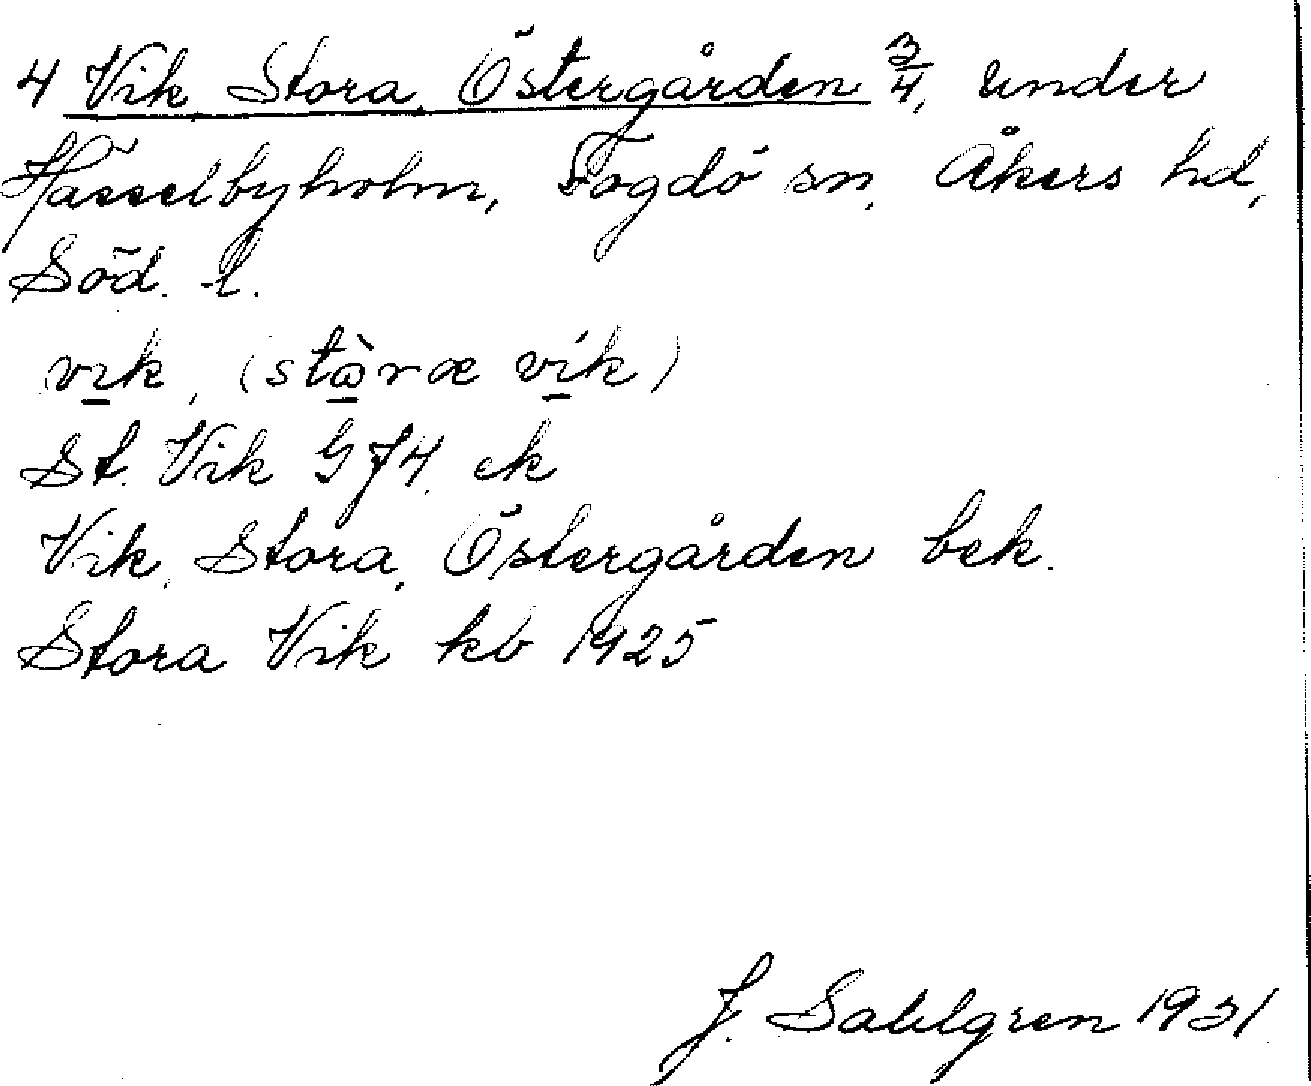 4 Vik, Stora, Östergården 3/4, under
Hässelbyholm, Fogdö sn, Åkers hd,
Söd. l.
vik, (stɷ̀ræ vík)
St. Vik G J4 ek
Vik, Stora, Östergården bek.
Stora Vik kb 1925
J. Sahlgren 1931